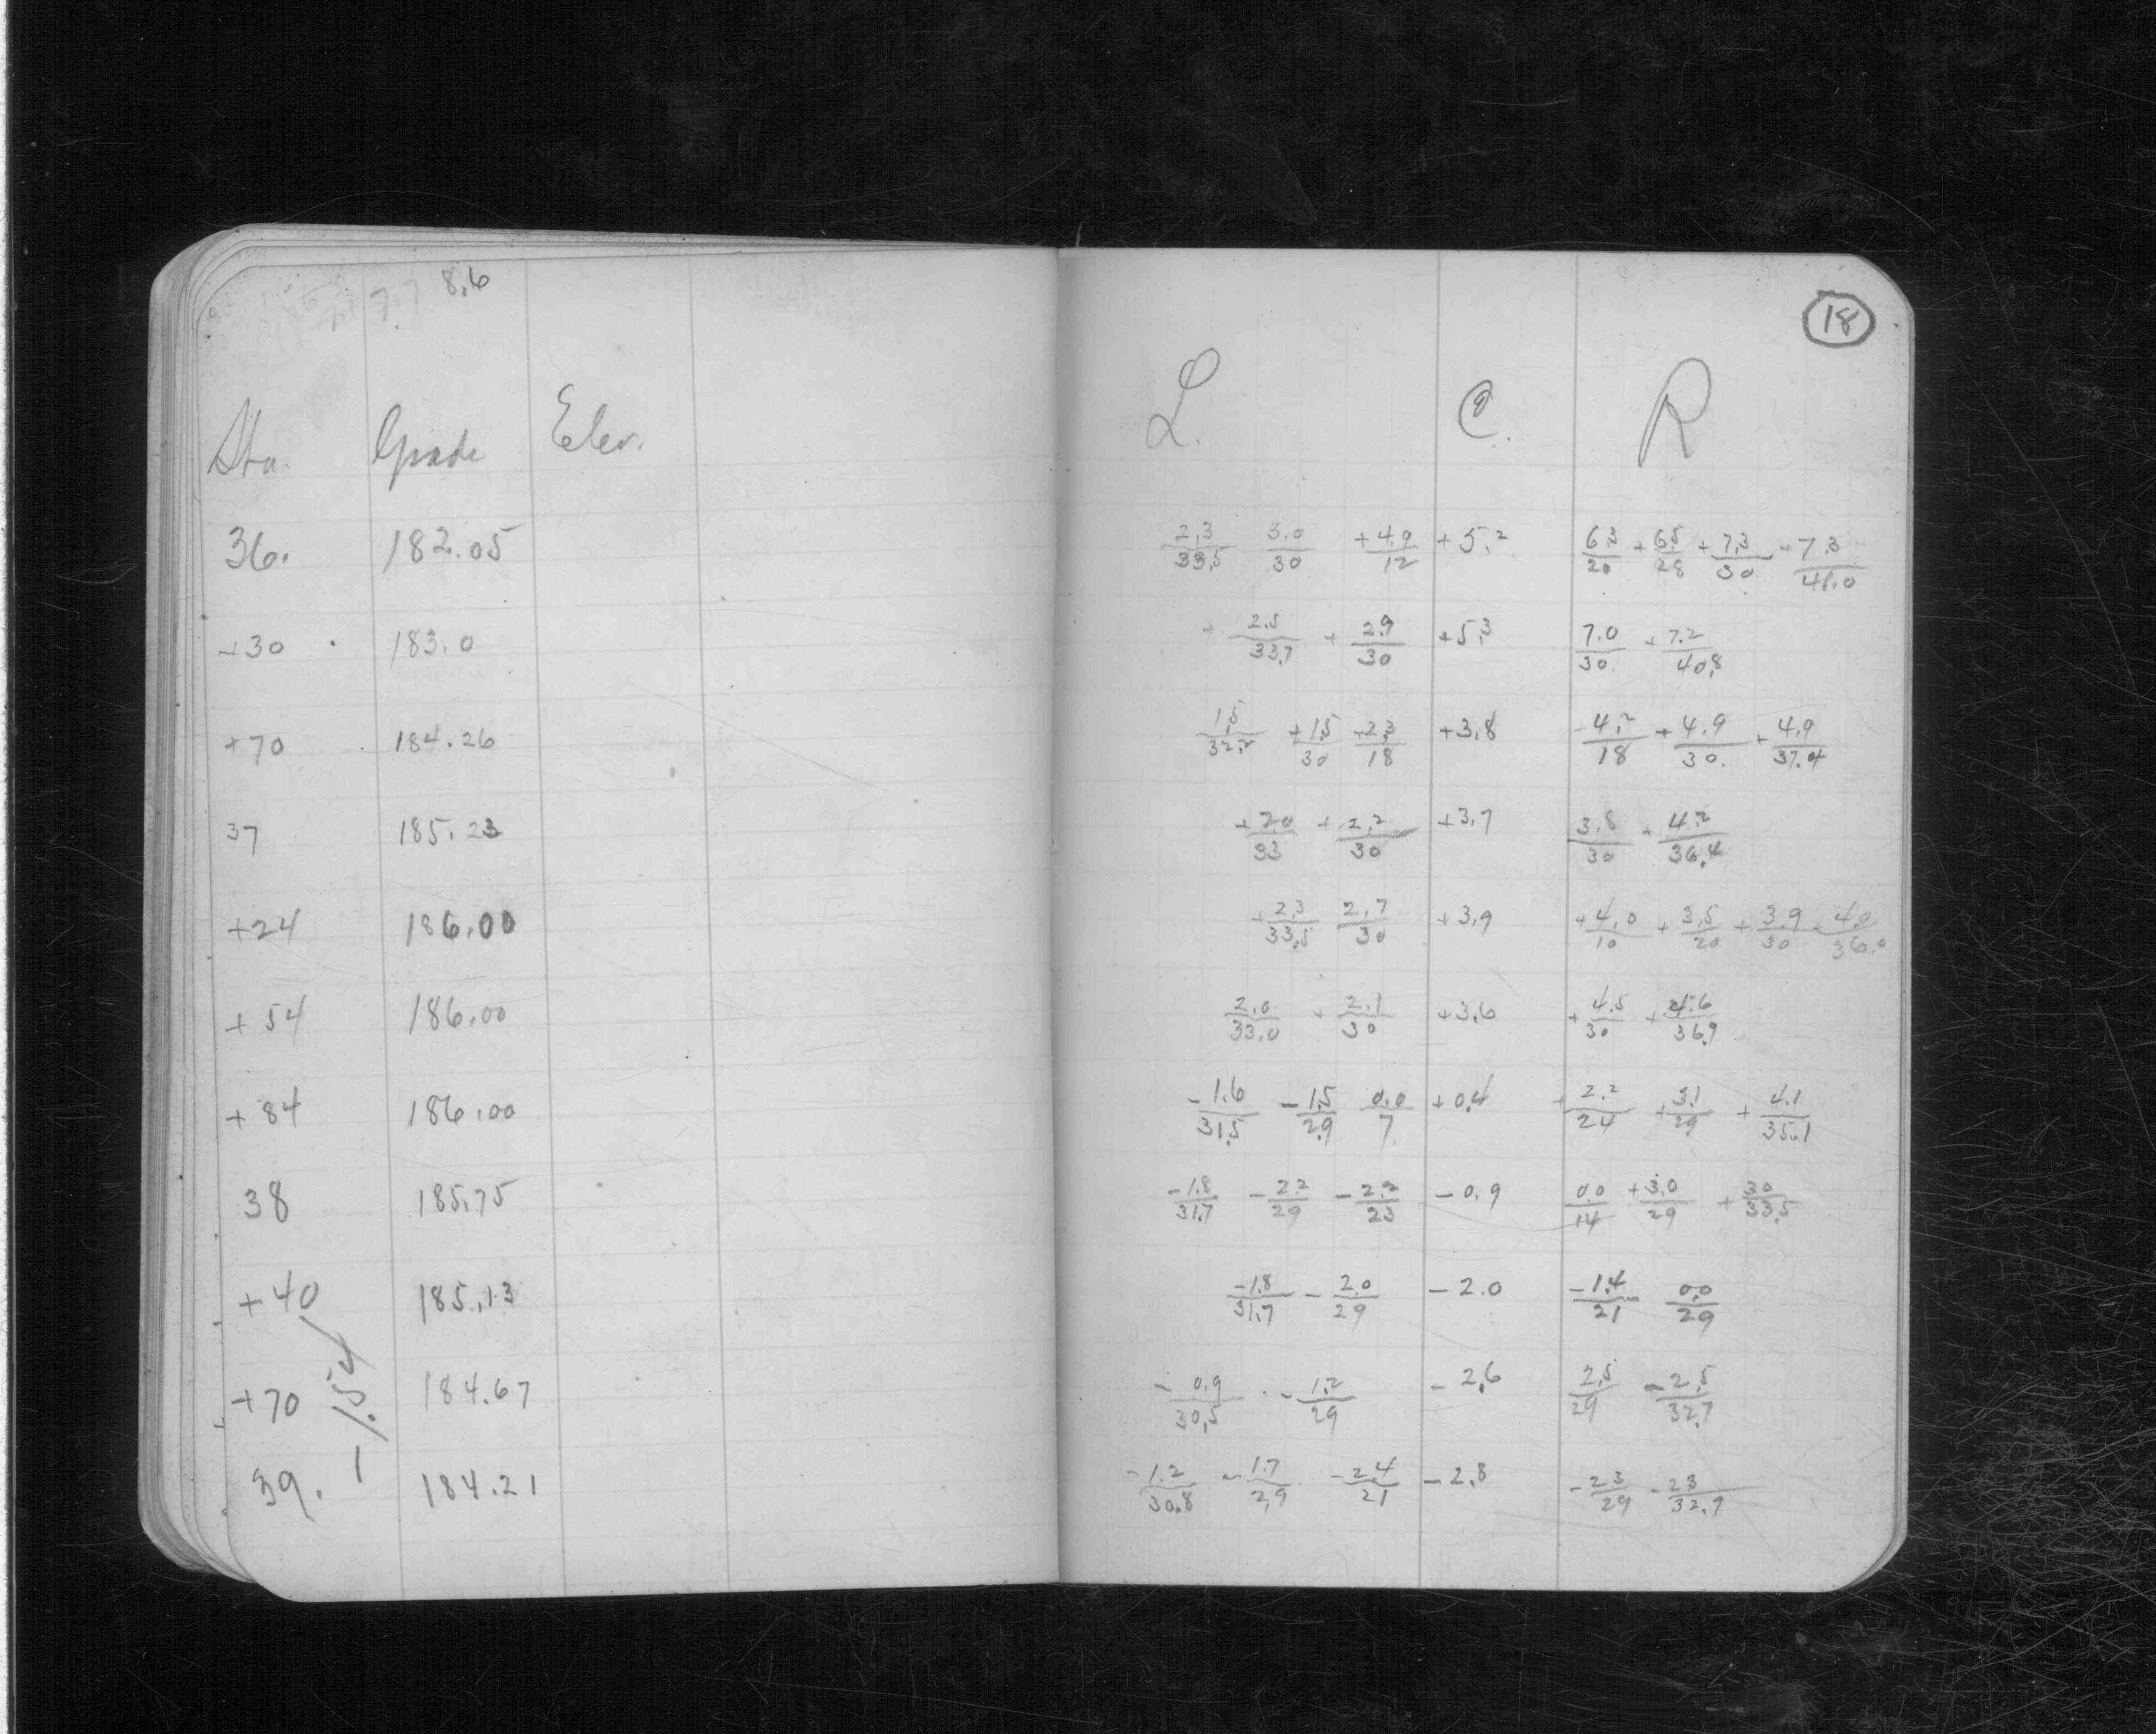 8.6
18
Sta. Grade Elev. L. C. R
36. 182.05 2.3/33.5 3.0/30 +4.9/12 +5.2 6.3/20 +6.5/28 +7.3/30 +7.3/41.0
+30 183.0 +2.5/33.7 +2.9/30 +5.3 7.0/30. +7.2/40.8
+70 184.26 1.5/32.2 +1.5/30 +2.3/18 +3.8 -4.2/18 +4.9/30. +4.9/37.4
37 185.23 +2.0/33 +2.2/30 +3.7 3.8/30 +4.2/36.4
+24 186.00 +2.3/33.5 2.7/30 +3.9 +4.0/10 +3.5/20 +3.9/30 4.0/36.0
+54 186.00 2.0/33.0 +2.1/30 +3.6 +4.5/30 +4.6/36.9
+84 186.00 -1.6/31.5 -1.5/29 0.0/7 +0.4 +2.2/24 +3.1/29 +4.1/35.1
38 185.75 -1.8/31.7 -2.2/29 -2.2/23 -0.9 0.0/14 +3.0/29 +3.0/33.5
+40 185.13 -1.8/31.7 -2.0/29 -2.0 -1.4/21 0.0/29
+70 184.67 -0.9/30.5 -1.2/29 -2.6 2.5/29 -2.5/32.7
-1.54
39. 184.21 -1.2/30.8 -1.7/29 -2.4/21 -2.8 -2.3/29 -2.3/32.9